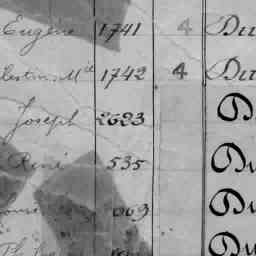 Eugène 1741 4 Du
lestin Mce 1742 4 Du
Joseph 2623 D
René 535 Du
Du
Du